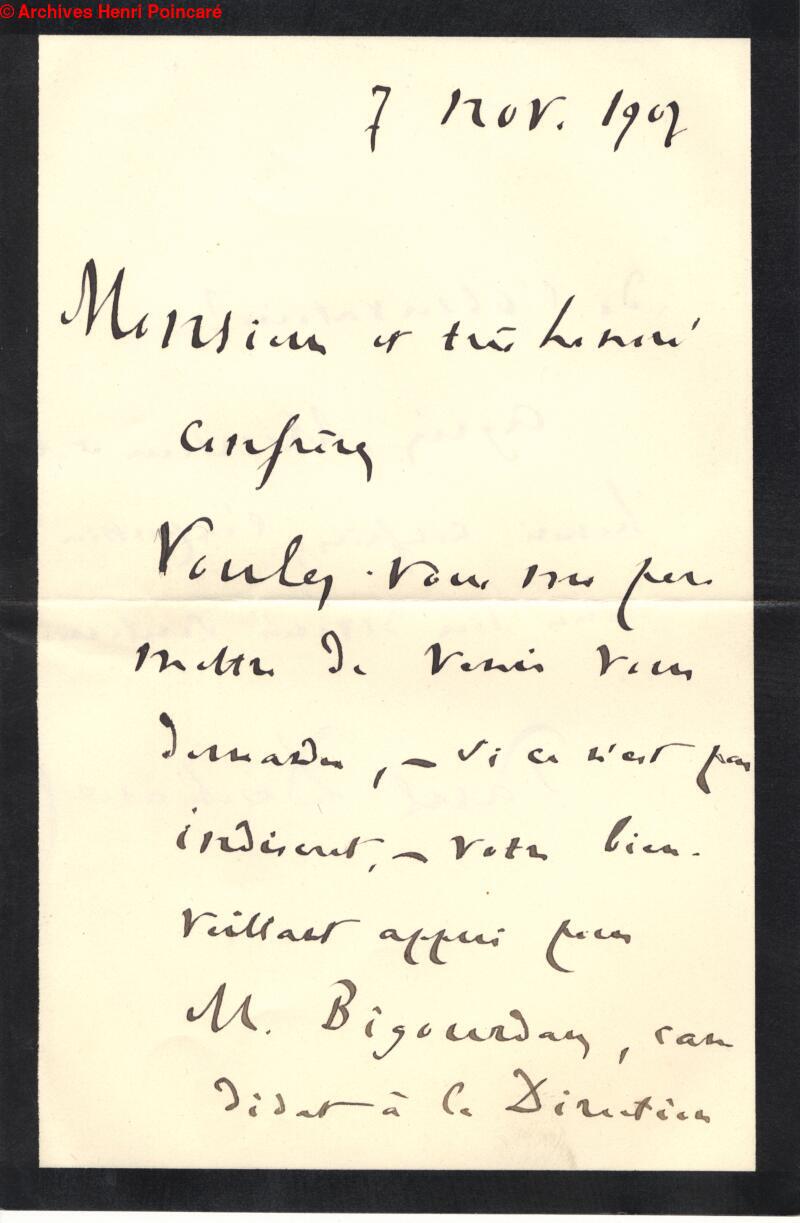 © Archives Henri Poincaré
7 nov. 1907
Monsieur et très honoré
Confrère
Voulez-vous me per
mettre de venir vous
demander, – si ce n'est pas
indiscret, – votre bien-
veillant appui pour
M. Bigourdan, can
didat à la Direction